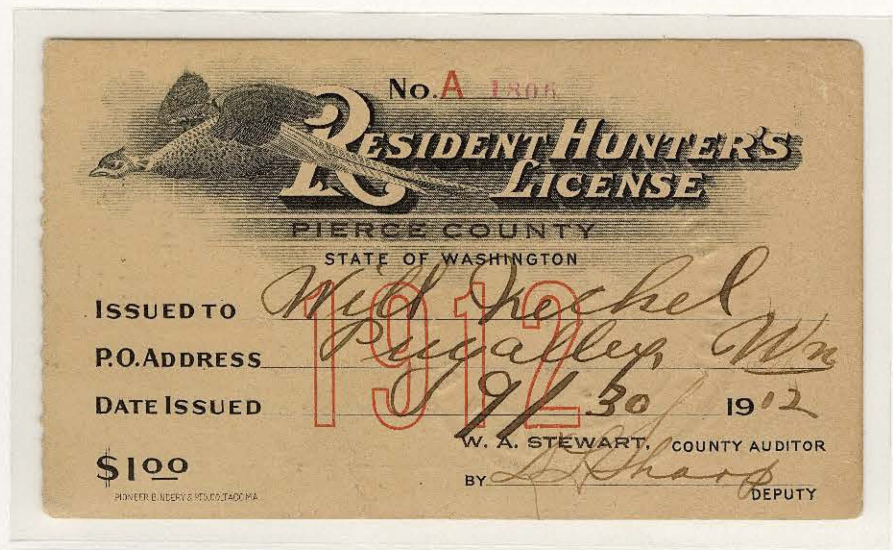 No. A 1806
RESIDENT HUNTER'S
LICENSE
PIERCE COUNTY
STATE OF WASHINGTON
1912
ISSUED TO Will
P.O. ADDRESS Puyallup, Wn
DATE ISSUED 9/30 1912
W. A. STEWART, COUNTY AUDITOR
$1.00
BY Sharp
DEPUTY
PIONEER BINDERY & PTG. CO. TACOMA